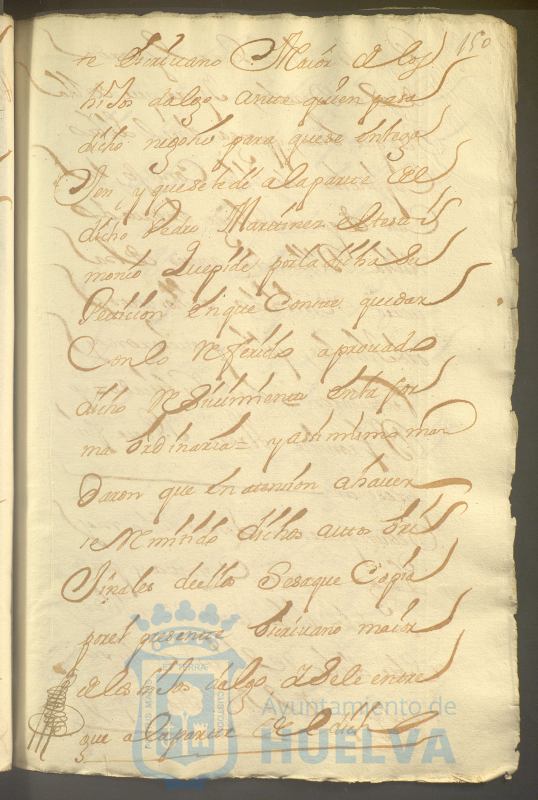 150
te Escrivano Maior de los
hijos dalgo ante quien pasa
dicho negocio para que se entrega
Sen, y que se le dé a la parte del
dicho Pedro Martinez el testi
monio Que pide por la dicha Su
Peticion en que Conste quedar
Con lo Referido aprovado
dicho Recivimiento en la for
ma ordinaria = y assi mismo man
Daron que en atencion a haver
se Remitido dichos autos ori
Jinales de ellos Se saque Copia
por el presente Escrivano maior
de los hijos dalgo y se le entre
gue a la parte de el dicho
Ayuntamiento de
HUELVA